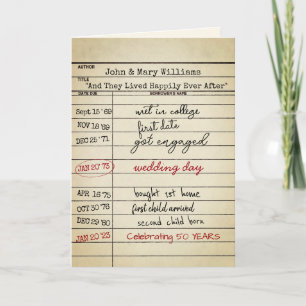 AUTHOR
John & Mary Williams
TITLE
"And They Lived Happily Ever After"
DATE DUE BORROWER'S NAME
Sept 15 '69 met in college
NOV 18 '69 first date
DEC 25 '71 got engaged
JAN 20 '73 wedding day
APR 16 '75 bought 1st home
OCT 30 '76 first child arrived
DEC 29 '80 second child born
JAN 20 '23 Celebrating 50 YEARS